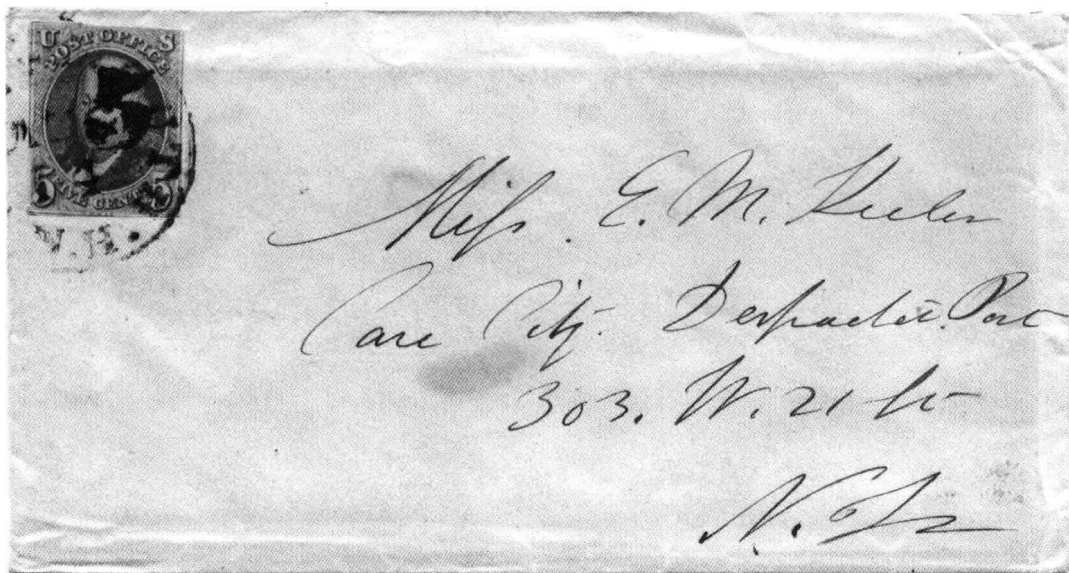 U S
POST OFFICE
5 FIVE CENTS 5
N.H.
Miss. E. M. Keeler
Care City Despatch Post
303. W. 21 St
N. Y.